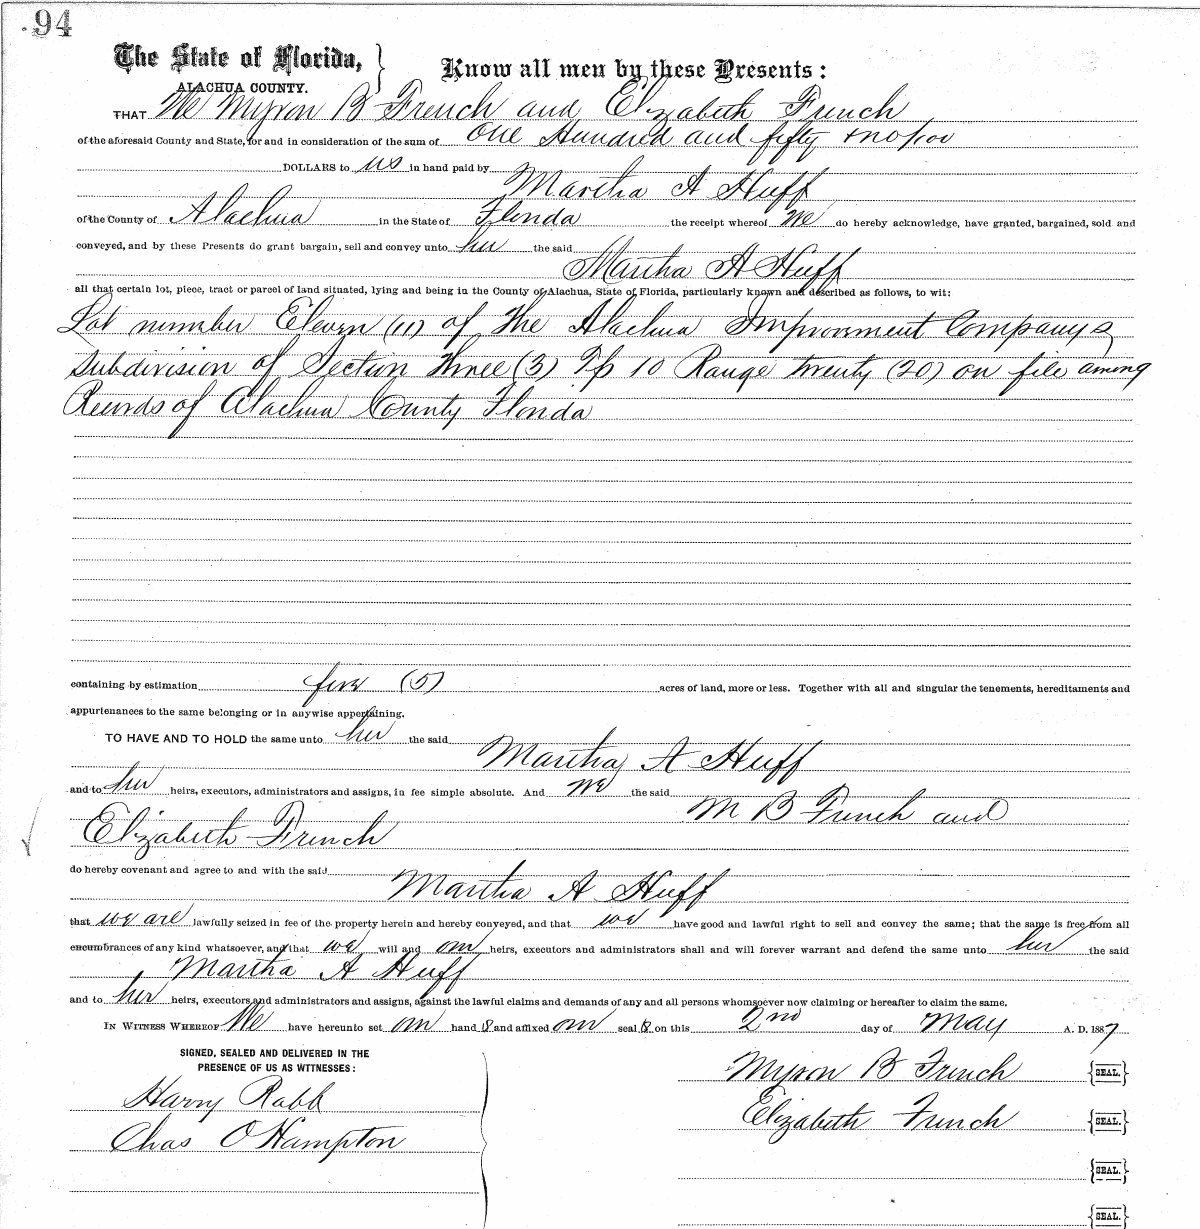 94
The State of Florida, }
ALACHUA COUNTY. Know all men by these Presents:
THAT We Myron B French and Elizabeth French
of the aforesaid County and State, for and in consideration of the sum of One Hundred and fifty & no/100
DOLLARS to us in hand paid by
Martha A Huff
of the County of Alachua in the State of Florida the receipt whereof we do hereby acknowledge, have granted, bargained, sold and
conveyed, and by these Presents do grant bargain, sell and convey unto her the said
Martha A Huff
all that certain lot, piece, tract or parcel of land situated, lying and being in the County of Alachua, State of Florida, particularly known and described as follows, to wit:
Lot number Eleven (11) of The Alachua Improvement Companys
Subdivision of Section three (3) Tp 10 Range twenty (20) on file among
Records of Alachua County Florida
containing by estimation five (5) acres of land, more or less. Together with all and singular the tenements, hereditaments and
appurtenances to the same belonging or in anywise appertaining.
TO HAVE AND TO HOLD the same unto her the said
Martha A Huff
and to her heirs, executors, administrators and assigns, in fee simple absolute. And we the said
M B French and
Elizabeth French
do hereby covenant and agree to and with the said
Martha A Huff
that we are lawfully seized in fee of the property herein and hereby conveyed, and that we have good and lawful right to sell and convey the same; that the same is free from all
encumbrances of any kind whatsoever, and that we will and our heirs, executors and administrators shall and will forever warrant and defend the same unto her the said
Martha A Huff
and to her heirs, executors and administrators and assigns, against the lawful claims and demands of any and all persons whomsoever now claiming or hereafter to claim the same.
IN WITNESS WHEREOF We have hereunto set our hand s and affixed our seal s on this 2nd day of May A. D. 1887
SIGNED, SEALED AND DELIVERED IN THE
PRESENCE OF US AS WITNESSES:
Myron B French {SEAL.}
Harry Rabb
Elizabeth French {SEAL.}
Chas O Hampton
{SEAL.}
{SEAL.}